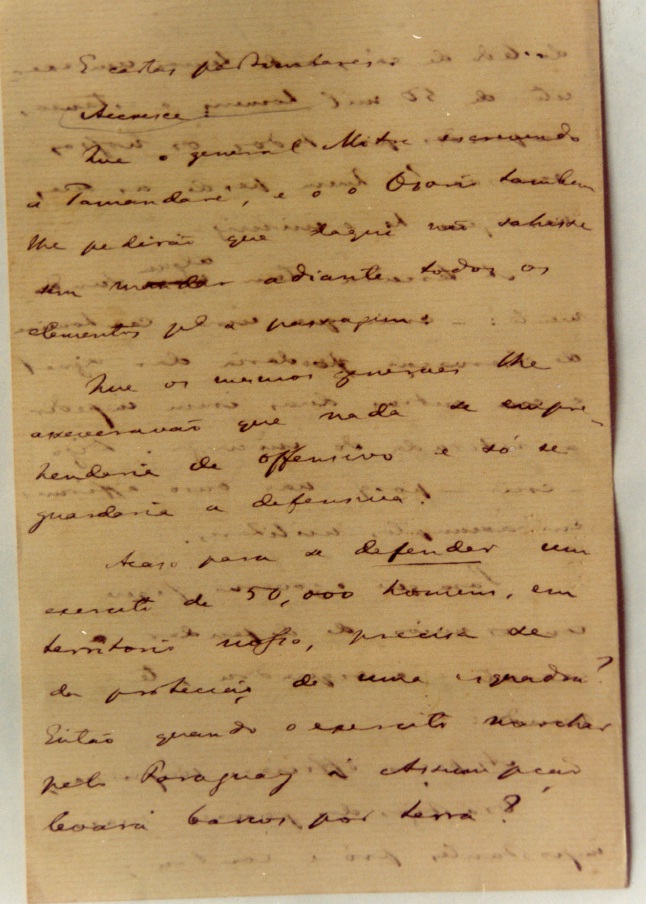 E cartas particulares.
Accresce
Que o general Mitre escrevendo
á Tamandaré, e o Ozorio tambem
lhe pedirão que daqui não sahisse
sem mandar adiante todos os
elementos pª a passagem.
Que os mesmos generaes lhe
asseveravão que nada se empre-
henderia de offensivo e só se
guardaria a defensiva.
Acaso para se defender um
exercito de 50,000 homens, em
territorio nosso, precisa se
da protecção de uma esquadra?
Então quando o exercito marchar
pelo Paraguay a Assumpção
levará barcos por terra?